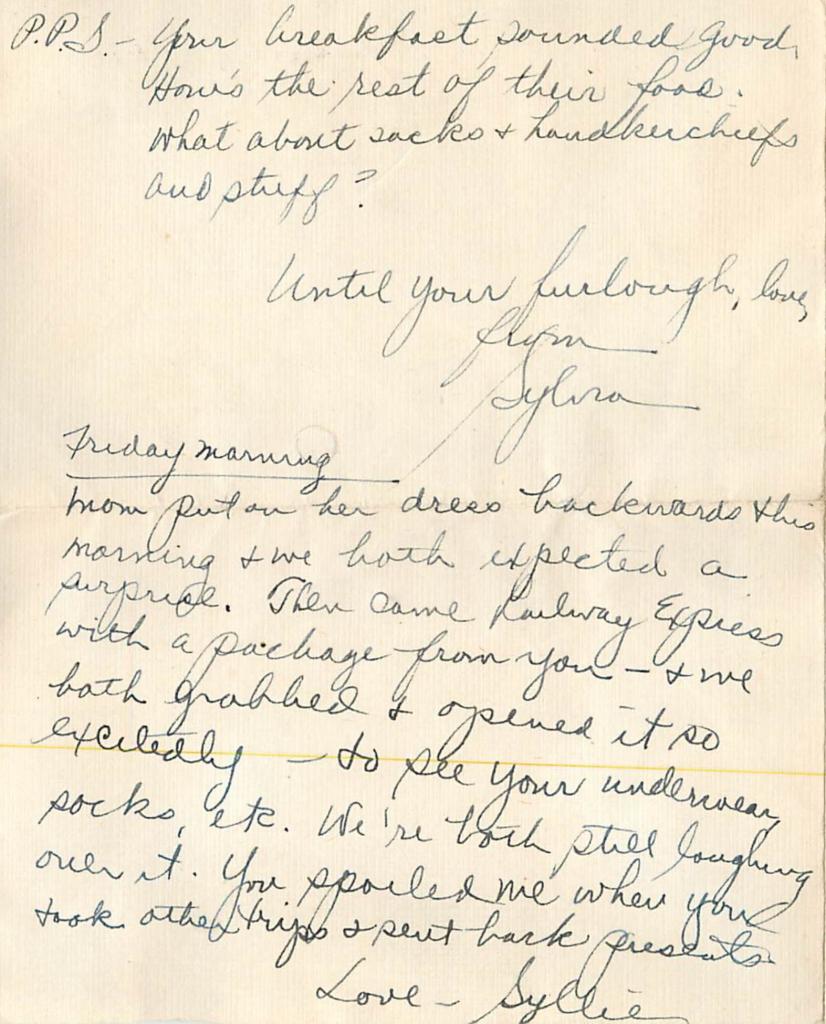 P.P.S. - Your breakfast sounded good.
How's the rest of their food.
What about socks & handkerchiefs
and stuff?
Until your furlough, love,
from
Sylvia
Friday morning
Mom put on her dress backwards this
morning & we both expected a
surprise. Then came Railway Express
with a package from you - & we
both grabbed & opened it so
excitedly - to see your underwear,
socks, etc. We're both still laughing
over it. You spoiled me when you
took other trips & sent back presents.
Love - Syllie